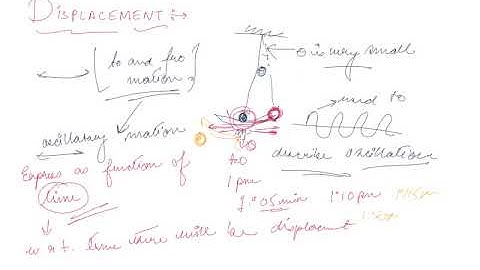 DISPLACEMENT :→
to and fro
motion
θ is very small
used to
oscillatory motion
describe oscillations
Express as function of
time
t=0
1 pm
1:05 min 1:10 pm 1:15 pm
w.r.t. time there will be displacement